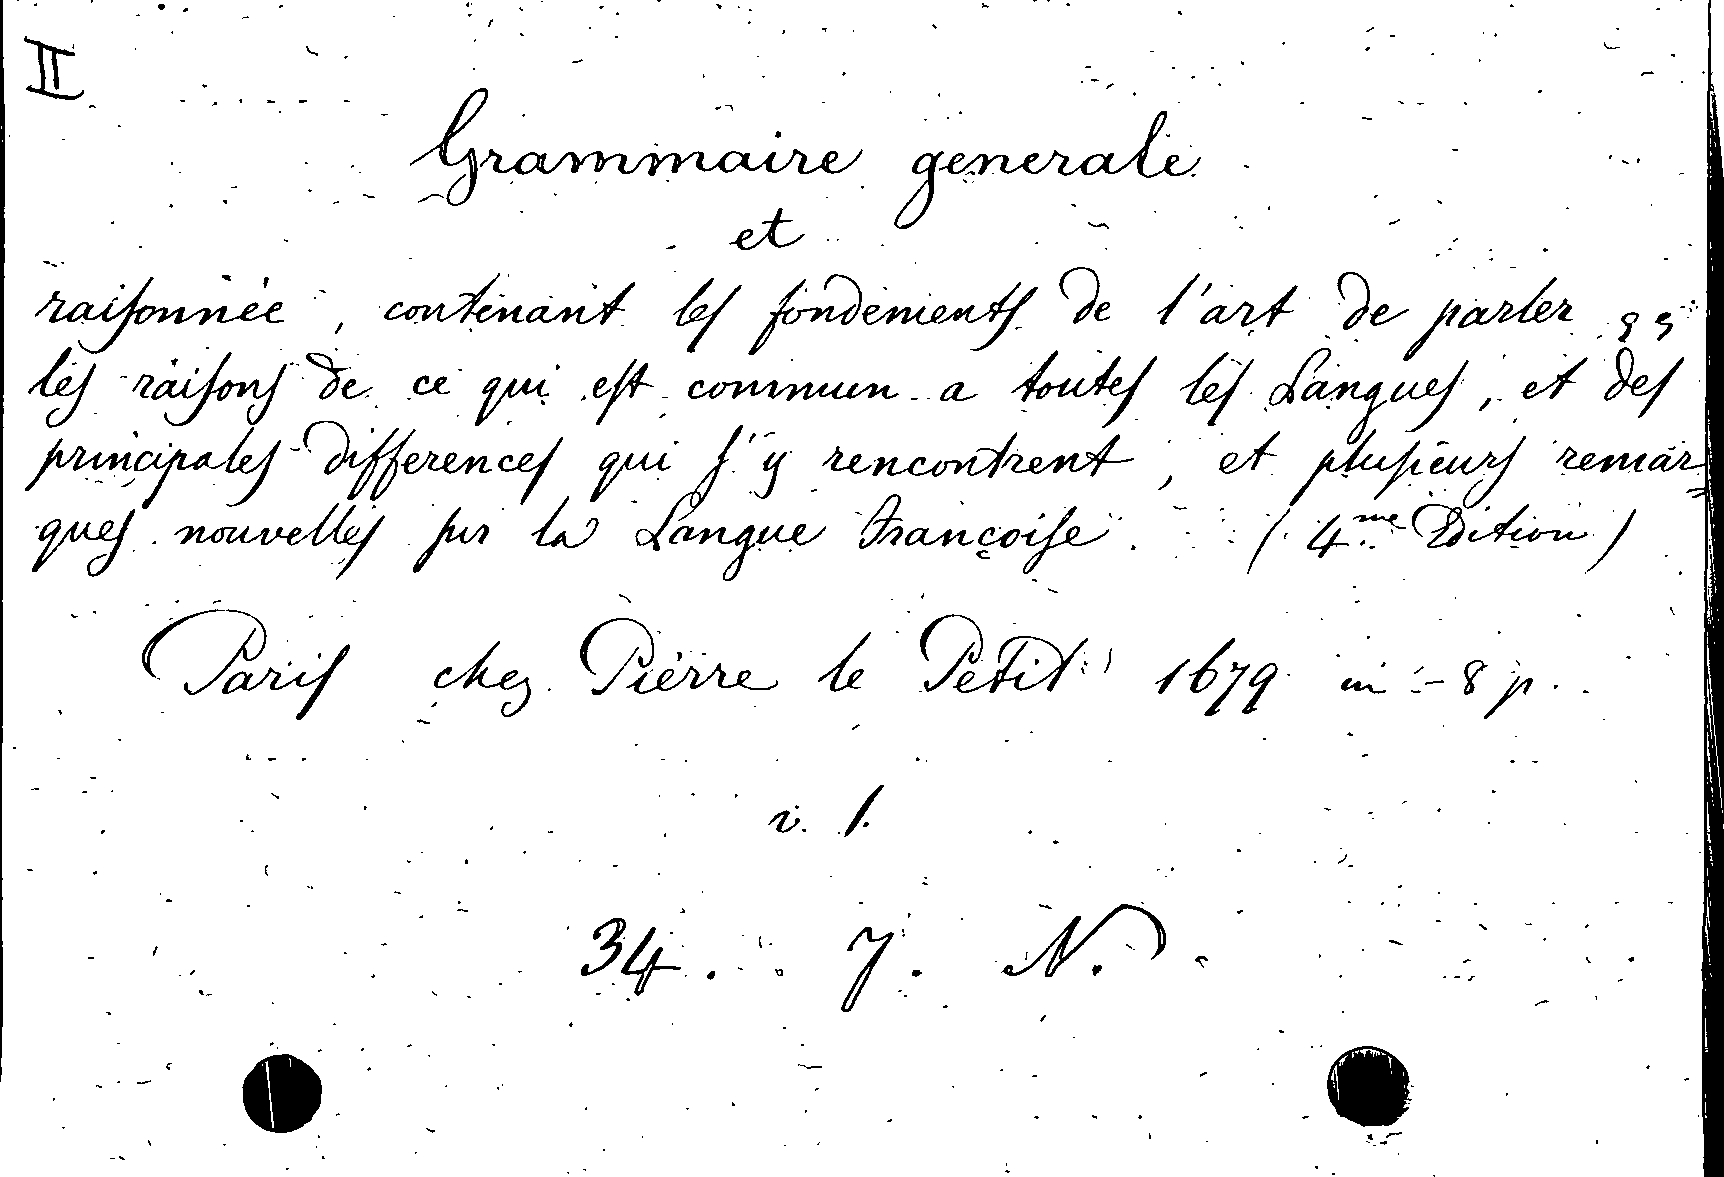 II
Grammaire generale
et
raiſonnée, contenant leſ fondementſ de l'art de parler
leſ raiſonſ de ce qui eſt commun a touteſ leſ Langueſ, et deſ
principaleſ differenceſ qui ſ'y rencontrent, et pluſieurſ remar=
queſ nouvelleſ ſur la Langue Françoiſe. (4me Edition)
Pariſ chez Pierre le Petit 1679 in-8 p.
34. 7. N.